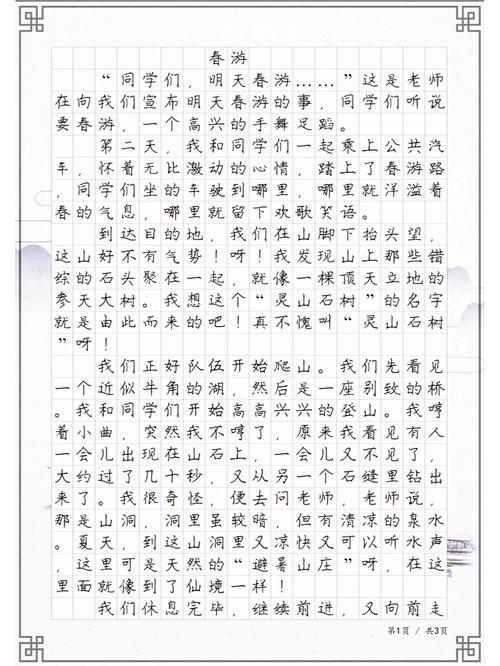 春游
“同学们，明天春游……”这是老师
在向我们宣布明天春游的事，同学们听说
要春游，一个高兴的手舞足蹈。
第二天，我和同学们一起乘上公共汽
车，怀着无比激动的心情，踏上了春游路
，同学们坐的车驶到哪里，哪里就洋溢着
春的气息，哪里就留下欢歌笑语。
到达目的地，我们在山脚下抬头望，
这山好不有气势！呀！我发现山上那些错
综的石头聚在一起，就像一棵顶天立地的
参天大树。我想这个“灵山石树”的名字
就是由此而来的吧！真不愧叫“灵山石树
”呀！
我们正好队伍开始爬山。我们先看见
一个近似牛角的湖，然后是一座别致的桥
。我和同学们开始高高兴兴的登山。我哼
着小曲，突然我不哼了，原来我看见有人
一会儿出现在山石上，一会儿又不见了，
大约过了几十秒，又从另一个石缝里钻出
来了。我很奇怪，便去问老师，老师说，
那是山洞，洞里虽较暗，但有清凉的泉水
。夏天，到这山洞里又凉快又可以听水声
，这里可是天然的“避暑山庄”呀，在这
里面就像到了仙境一样！
我们休息完毕，继续前进，又向前走
第1页 / 共3页